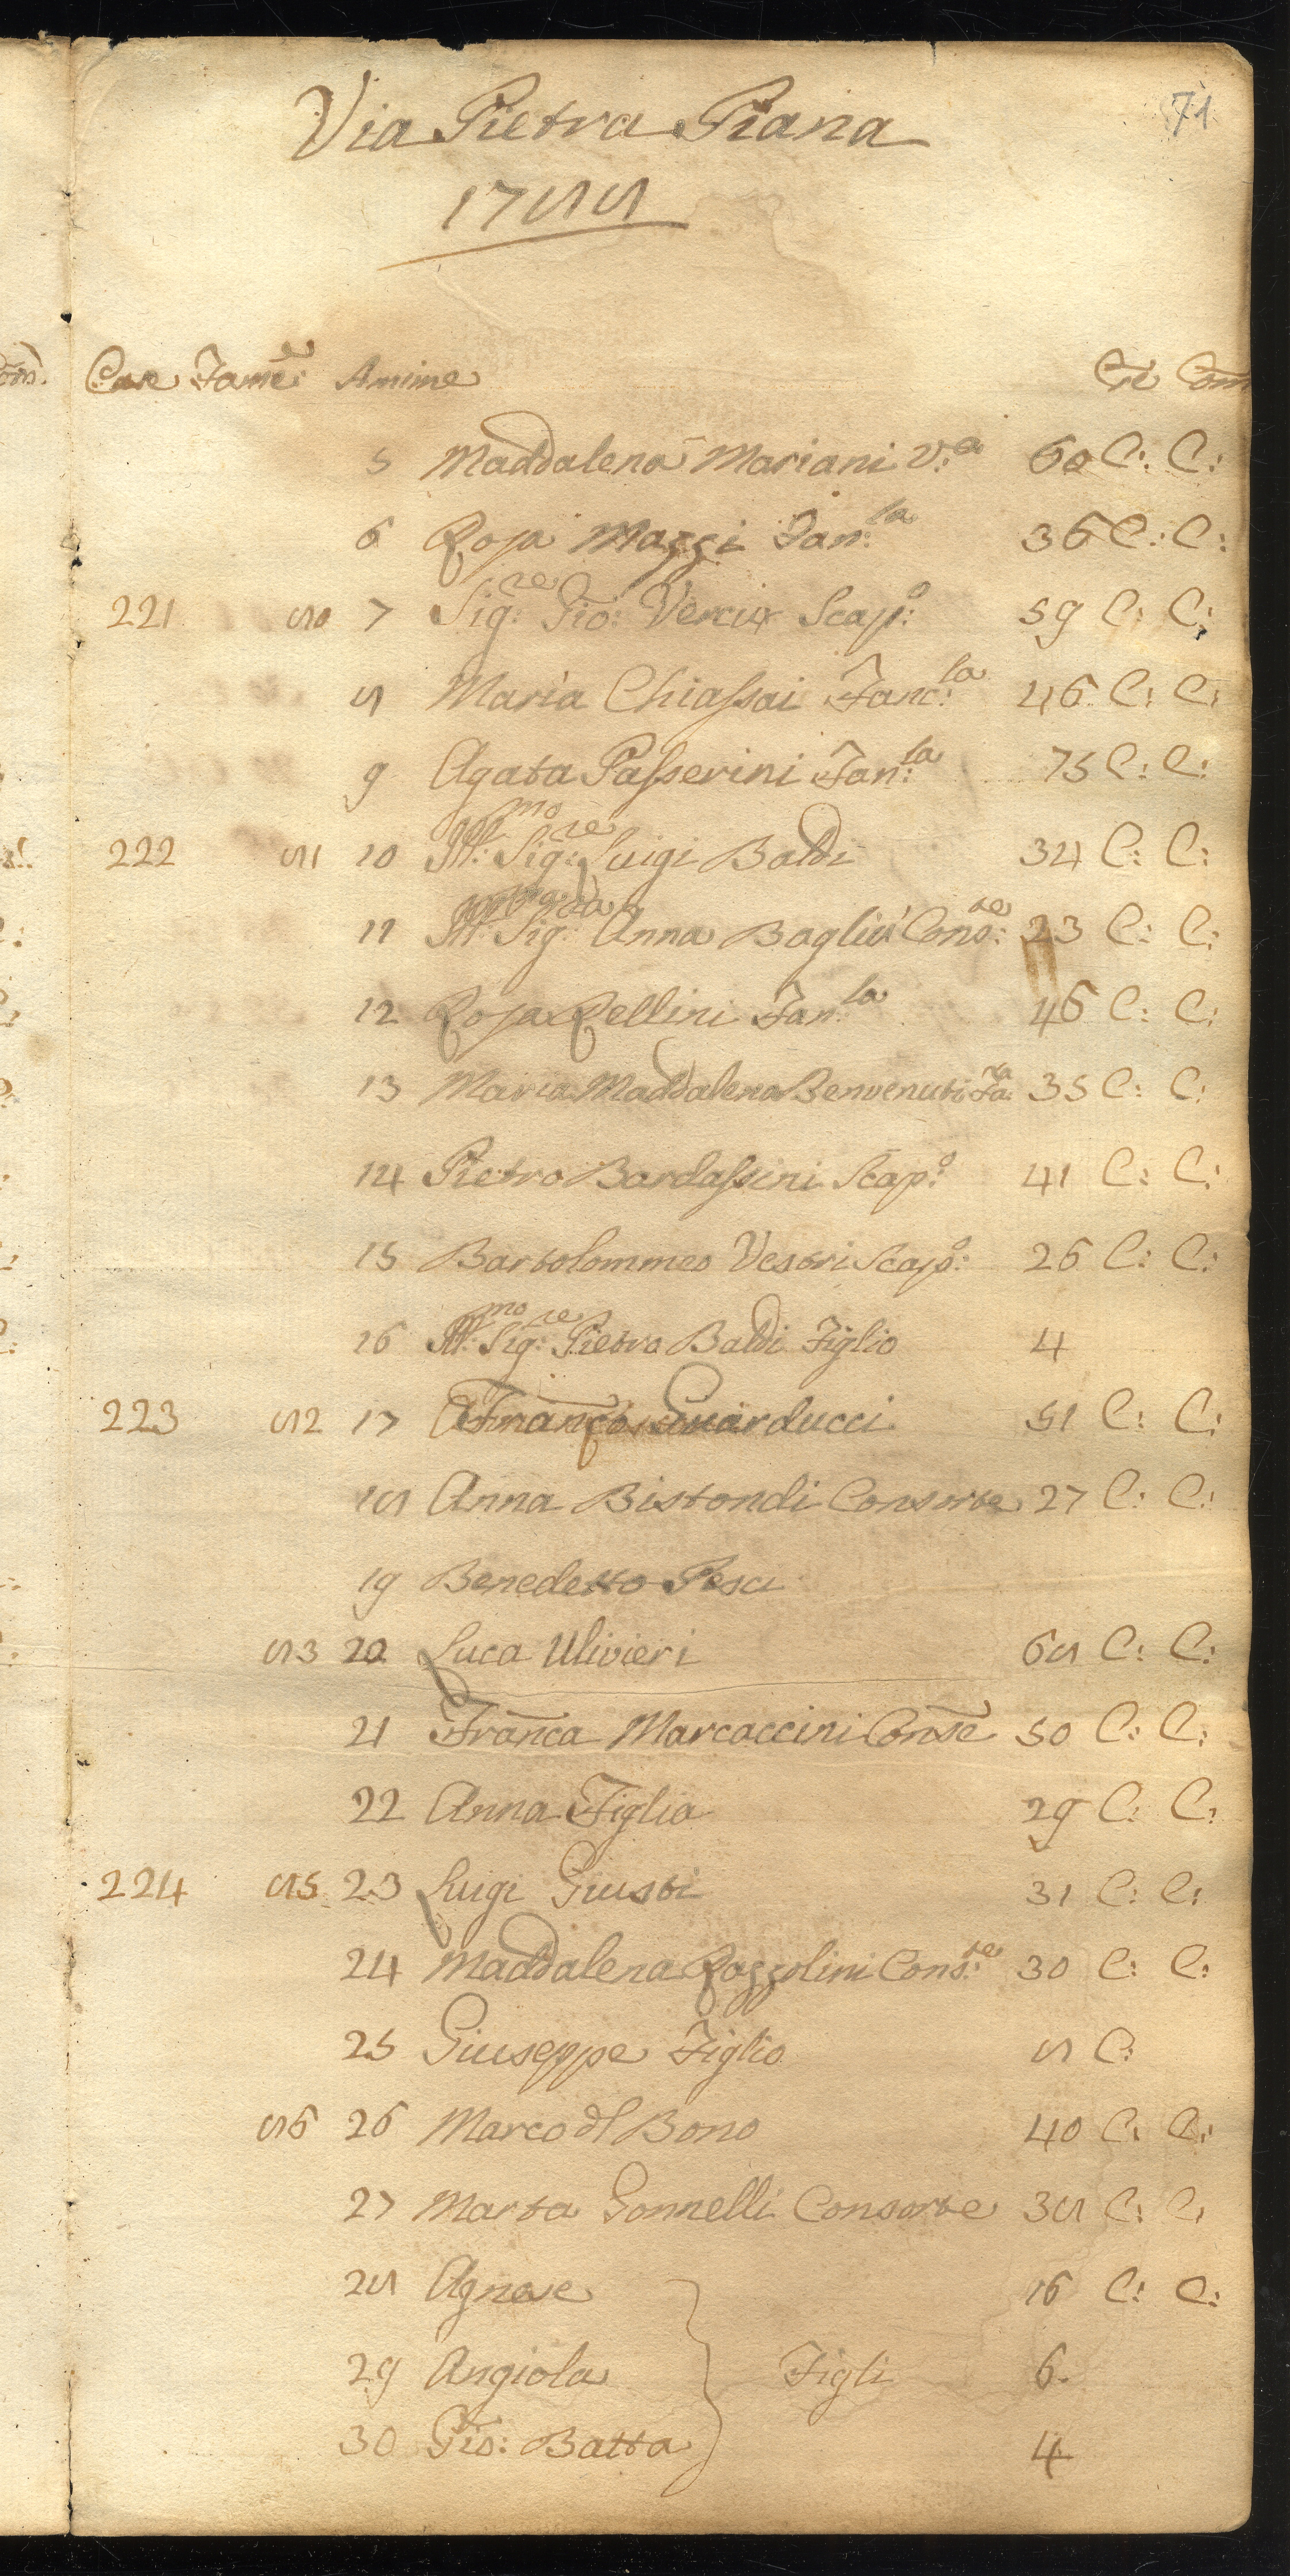 71
Via Pietra Piana
1788
Case Fame: Anime Cre: Com
5 Maddalena Mariani V:a 60 C: C:
6 Rosa Mazzi Fan:la 36 C: C:
221 80 7 Sig:re Gio: Vercix Scap:o 59 C: C:
8 Maria Chiassai Fanc:la 46 C: C:
9 Agata Passerini Fan:la 75 C: C:
222 81 10 Ill:mo Sig:re Luigi Baldi 34 C: C:
11 Ill:ma Sig:ra Anna Bagliu' Cons:te 23 C: C:
12 Rosa Rellini Fan:la 46 C: C:
13 Maria Maddalena Benvenuti Fa:la 35 C: C:
14 Pietro Bardassini Scap:o 41 C: C:
15 Bartolommeo Vestri Scap:o 26 C: C:
16 Ill:mo Sig:re Pietro Baldi Figlio 4
223 82 17 Franco Guarducci 51 C: C:
18 Anna Bistondi Consorte 27 C: C:
19 Benedetto Pesci
83 20 Luca Ulivieri 68 C: C:
21 Franca Marcaccini Conse 50 C: C:
22 Anna Figlia 29 C: C:
224 85 23 Luigi Giusti 31 C: C:
24 Maddalena Rozzolini Cons:te 30 C: C:
25 Giuseppe Figlio 8 C:
86 26 Marco dl Bono 40 C: C:
27 Marta Gonnelli Consorte 38 C: C:
28 Agnese 16 C: C:
29 Angiola Figli 6
30 Gio: Batta 4